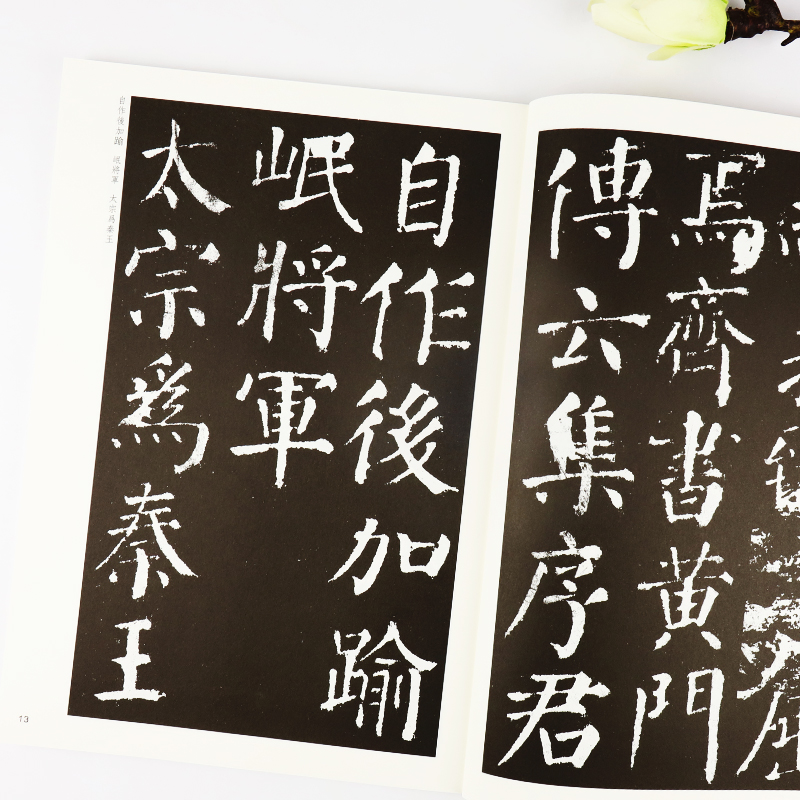 焉齊書黄門
傳云集序君
自作後加踰
岷將軍
太宗爲秦王
自作後加踰 岷將軍 太宗爲秦王
13